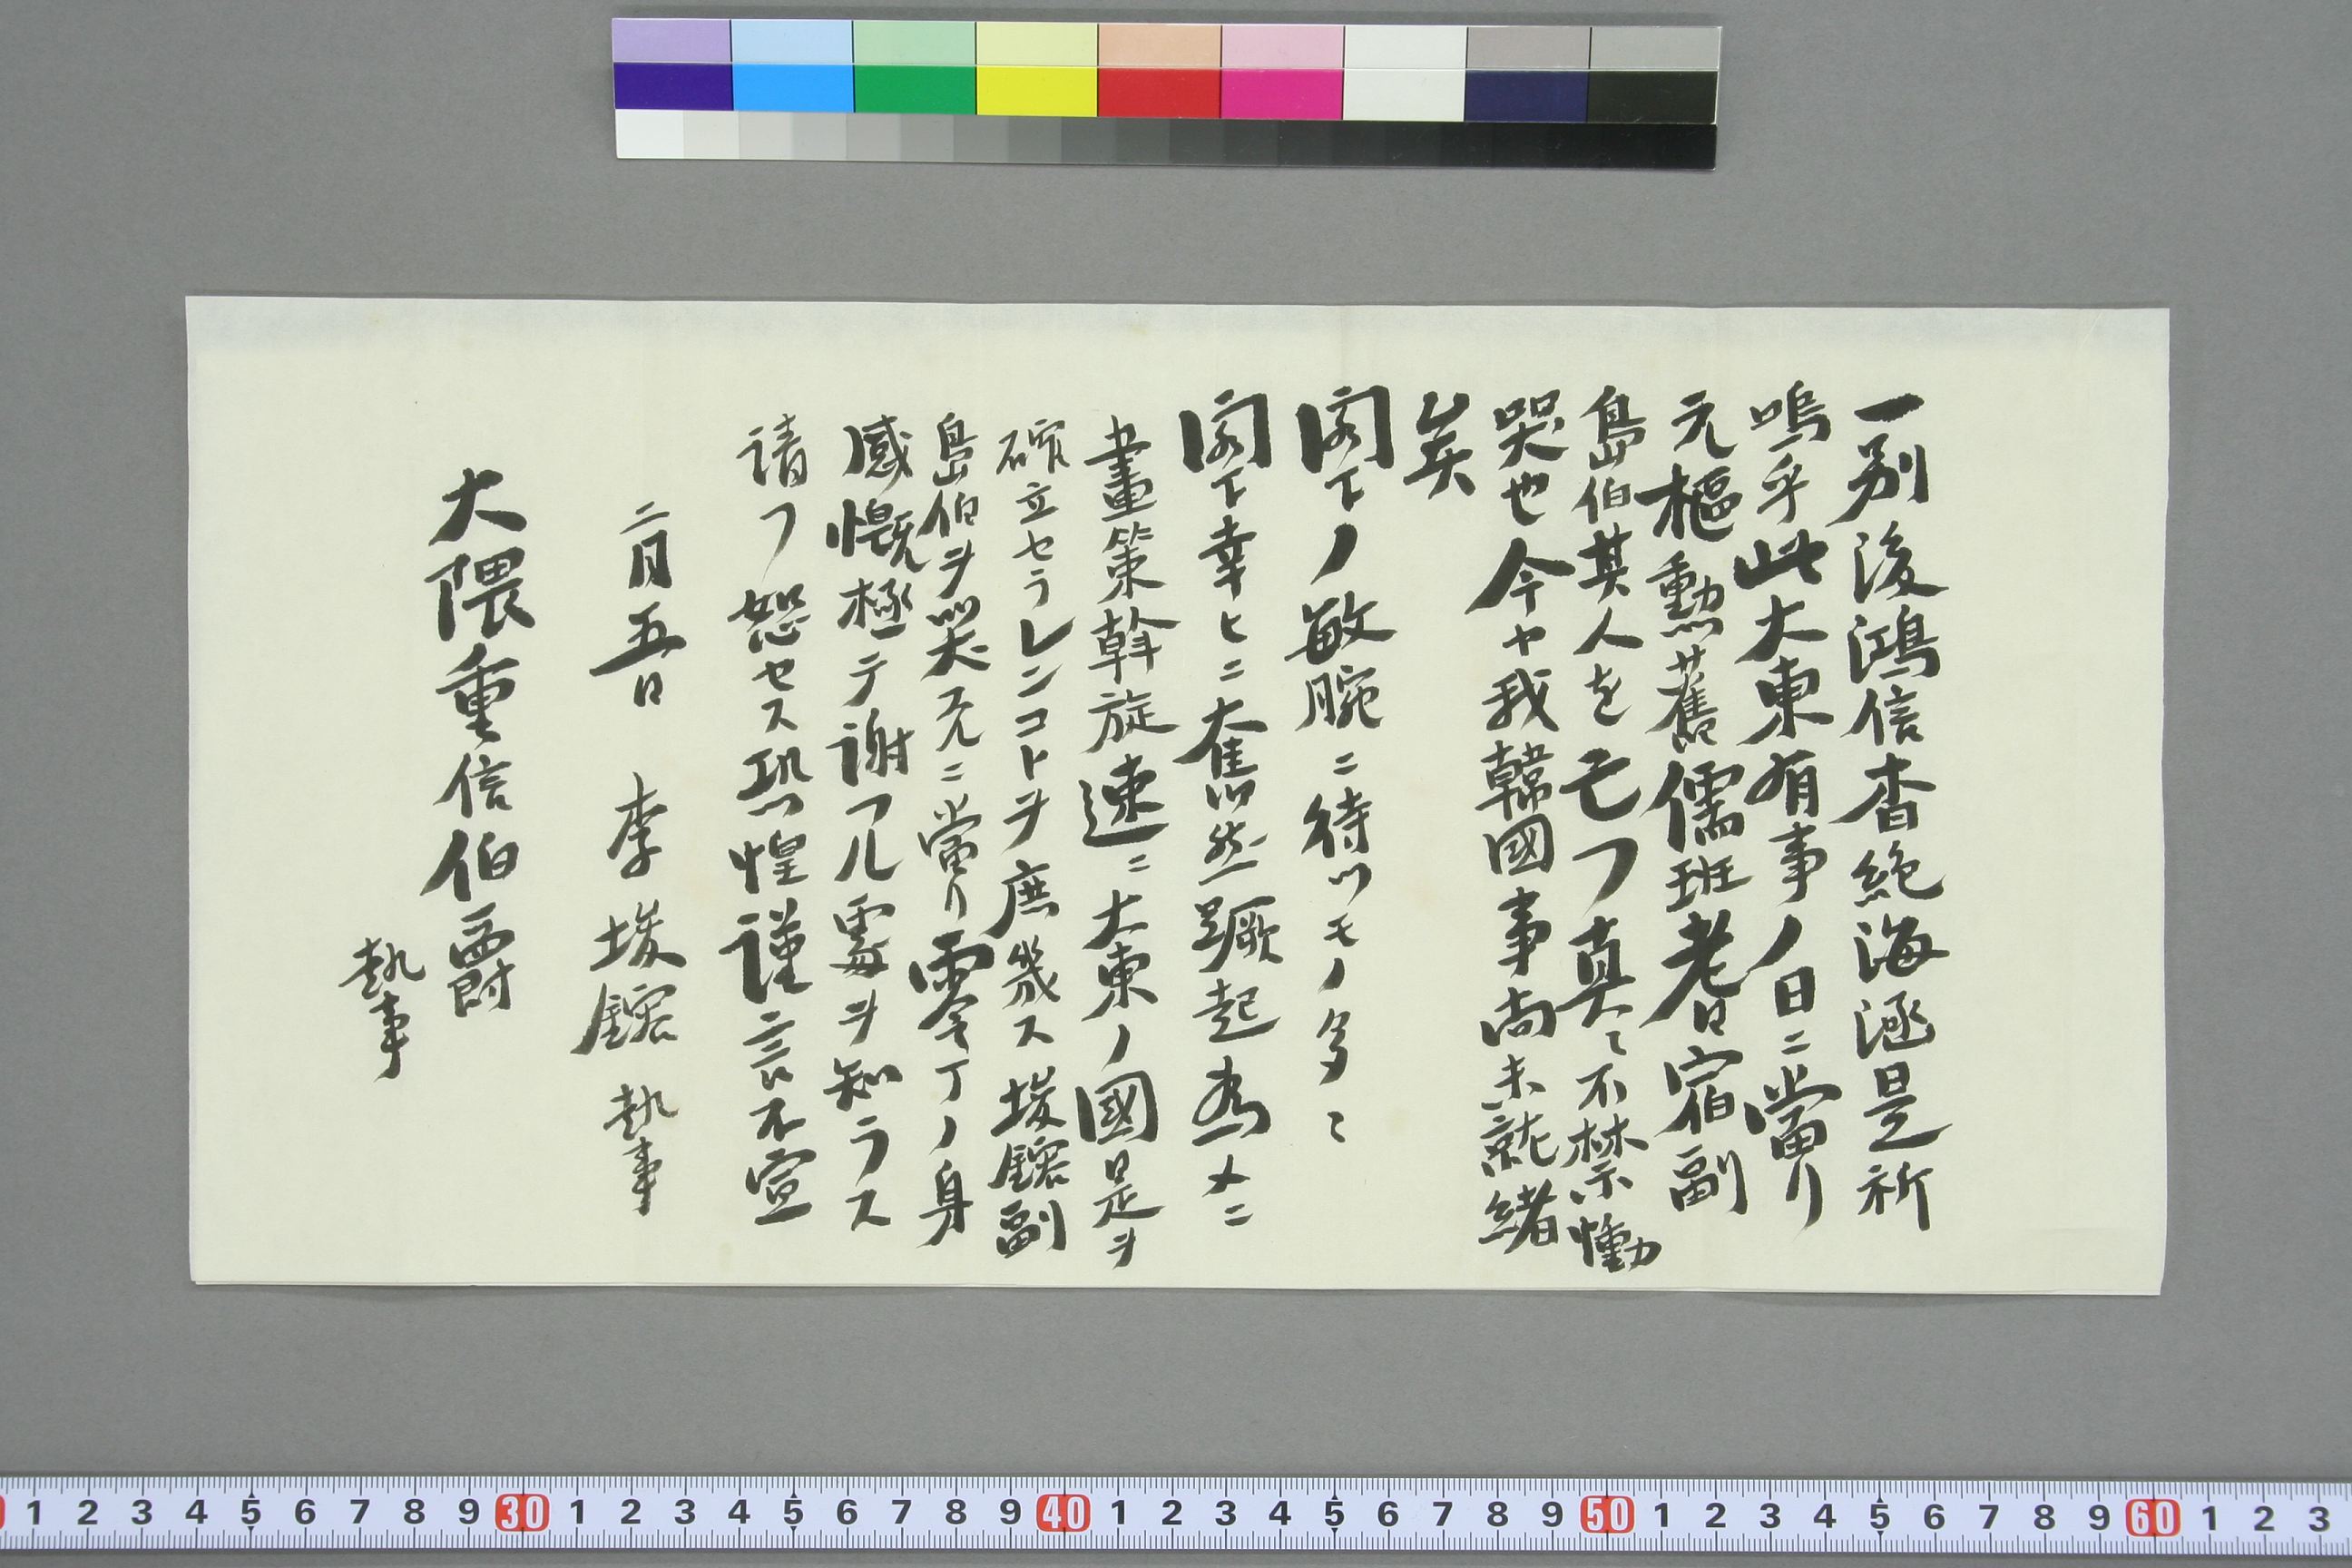 一別後鴻信杳絶海涵是祈
嗚乎此大東有事ノ日ニ當リ
元樞勳舊儒班老宿副
島伯其人を亡フ真ニ不禁慟
哭也今ヤ我韓國事尚未就緒
矣
閣下ノ敏腕ニ待ツモノ多ミ
閣下幸ヒニ大奮然蹶起為メニ
畫策斡旋速ニ大東ノ國是ヲ
確立セラレンコトヲ庶幾ス埈鎔副
島伯ヲ哭スルニ當リ零丁ノ身
感慨極テ謝フル處ヲ知ラス
請フ恕セス恐惶謹言不宣
二月五日 李埈鎔 執事
大隈重信伯爵
執事
1 2 3 4 5 6 7 8 9 30 1 2 3 4 5 6 7 8 9 40 1 2 3 4 5 6 7 8 9 50 1 2 3 4 5 6 7 8 9 60 1 2 3